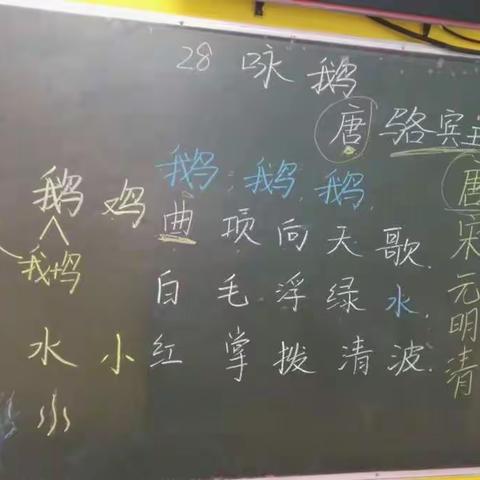 28 咏鹅
唐 骆宾王
鹅，鹅，鹅，
曲项向天歌.
白毛浮绿水，
红掌拨清波.
鹅 鸡
我+鸟
水 小
唐宋元明清